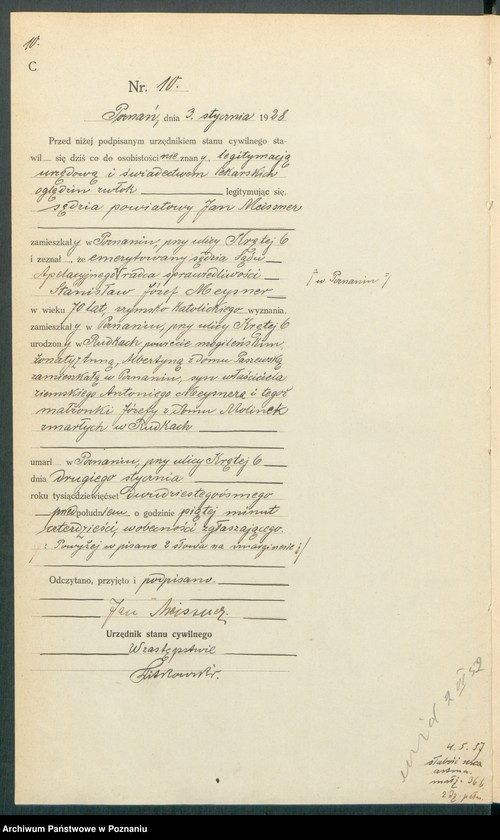 10.
C
Nr. 10.
Poznań, dnia 3. stycznia 1928
Przed niżej podpisanym urzędnikiem stanu cywilnego sta-
wił się dziś co do osobistości nie znany, legitymacją
urzędową i świadectwem lekarskich
oględzin zwłok legitymując się,
sędzia powiatowy Jan Meissner
zamieszkały w Poznaniu, przy ulicy Krętej 6
i zeznał, że emerytowany sędzia Sądu
Apelacyjnego radca sprawiedliwości
[w Poznaniu]
Stanisław Józef Meysner
w wieku 70 lat, rzymsko katolickiego wyznania,
zamieszkały w Poznaniu, przy ulicy Krętej 6
urodzony w Rudkach powiecie mogileńskim,
żonaty z Anną, Albertyną z domu
zamieszkałą w Poznaniu, syn właściciela
ziemskiego Antoniego Meysnera i tegoż
małżonki Józefy z domu Molinek
zmarłych w Rudkach
umarł w Poznaniu, przy ulicy Krętej 6
dnia drugiego stycznia
roku tysiącdziewięćset dwudziestegoósmego
przedpołudniem o godzinie piątej minut
czterdzieści, w obecności zgłaszającego.
Powyżej wpisano 2 słowa na marginesie
Odczytano, przyjęto i podpisano.
Jan Meissner.
Urzędnik stanu cywilnego
W zastępstwie
4. 5. 57
słabość serca
astma.
Archiwum Państwowe w Poznaniu